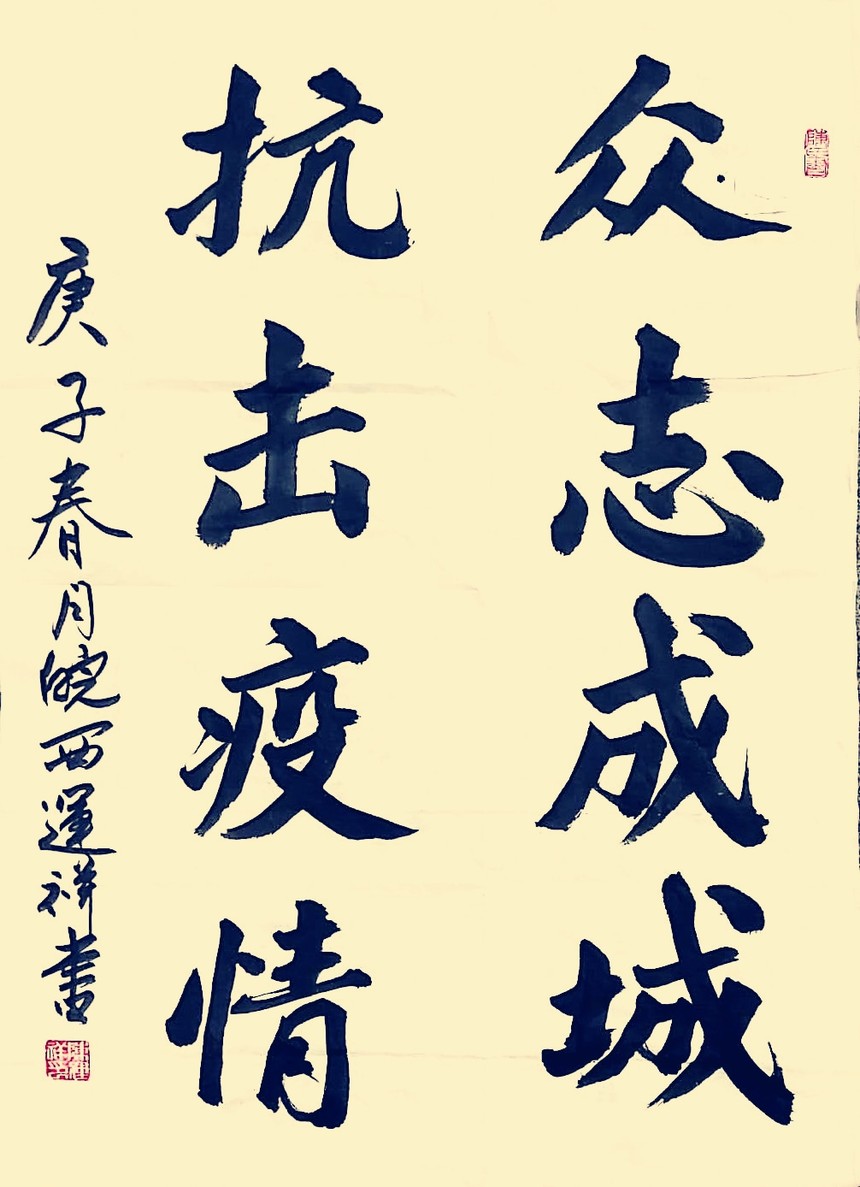 众志成城
抗击疫情
庚子春月皖西運祥書